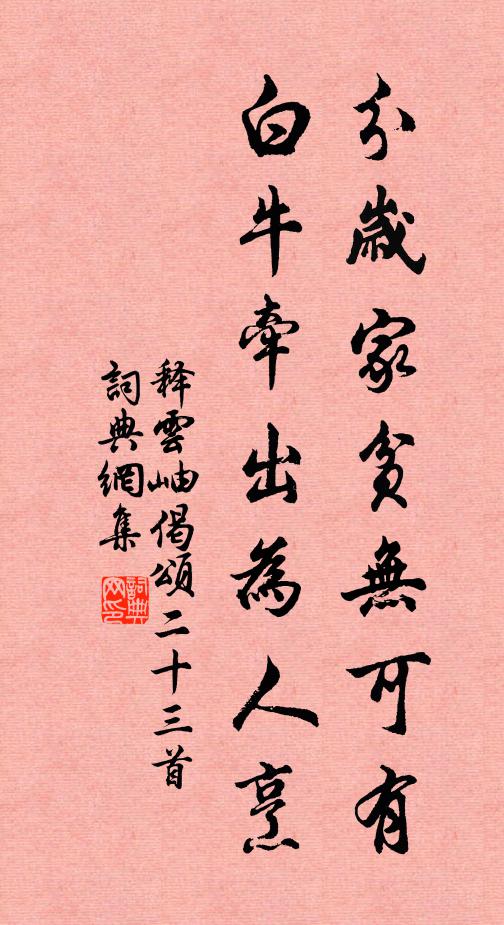 分歲家貧無可有
白牛牽出為人烹
释雲岫偈頌二十三首
詞典網集
詞典
网印